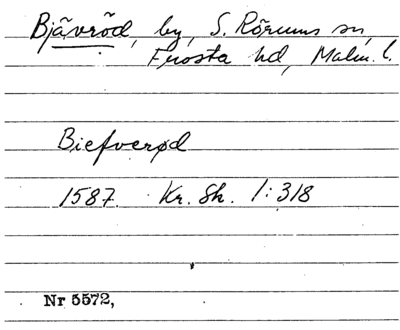 Bjävröd, by, S. Rörums sn,
Frosta hd, Malm. l.
Biefverød
1587. Kr. Sk. 1:318
Nr 5572,